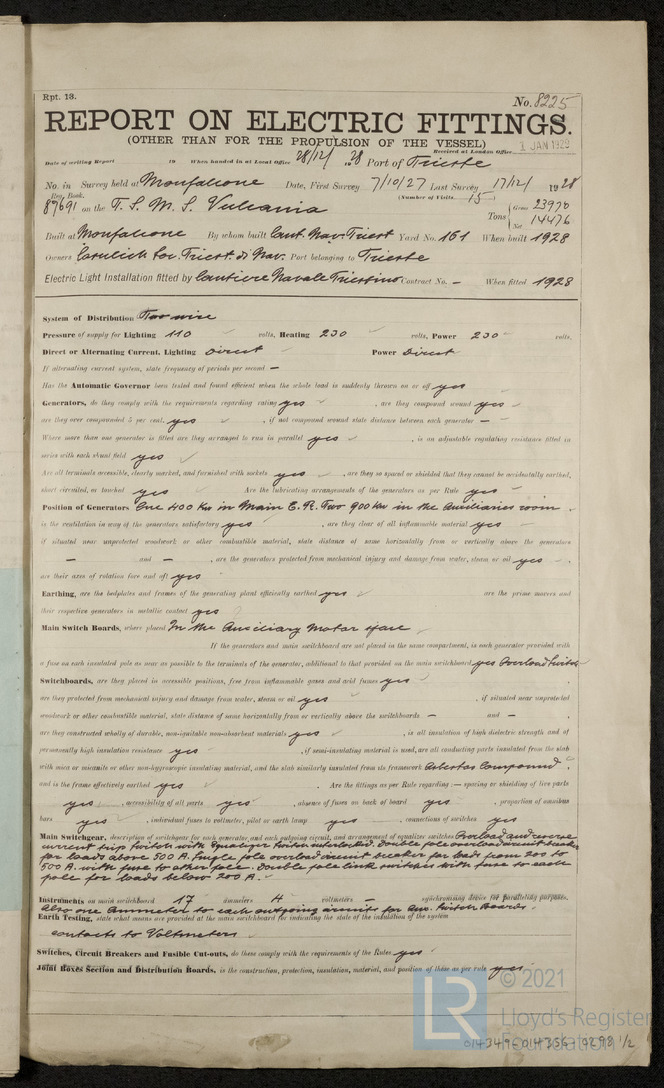 Rpt. 13.
No. 8225
REPORT ON ELECTRIC FITTINGS.
(OTHER THAN FOR THE PROPULSION OF THE VESSEL)
Received at London Office JAN 1929
Date of writing Report 19 When handed in at Local Office 28/12/ 1928 Port of Trieste
No. in Survey held at Monfalcone Date, First Survey 7/10/27 Last Survey 17/12/ 1928
Reg. Book. (Number of Visits 15
87691 on the T. S. M. S. Vulcania Tons Gross 23970
Net 14476
Built at Monfalcone By whom built Cant. Nav. Triest Yard No. 161 When built 1928
Owners Cosulich Soc. Triest. di Nav. Port belonging to Trieste
Electric Light Installation fitted by Cantiere Navale Triestino Contract No. — When fitted 1928
System of Distribution Two wire
Pressure of supply for Lighting 110 volts, Heating 230 volts, Power 230 volts.
Direct or Alternating Current, Lighting Direct Power Direct
If alternating current system, state frequency of periods per second —
Has the Automatic Governor been tested and found efficient when the whole load is suddenly thrown on or off yes
Generators, do they comply with the requirements regarding rating yes , are they compound wound yes
are they over compounded 5 per cent. yes , if not compound wound state distance between each generator —
Where more than one generator is fitted are they arranged to run in parallel yes , is an adjustable regulating resistance fitted in
series with each shunt field yes
Are all terminals accessible, clearly marked, and furnished with sockets yes , are they so spaced or shielded that they cannot be accidentally earthed,
short circuited, or touched yes Are the lubricating arrangements of the generators as per Rule yes
Position of Generators One 400 Kw in Main E. R. Two 900 Kw in the Auxiliaries room.
is the ventilation in way of the generators satisfactory yes , are they clear of all inflammable material yes
if situated near unprotected woodwork or other combustible material, state distance of same horizontally from or vertically above the generators
— and — , are the generators protected from mechanical injury and damage from water, steam or oil yes
are their axes of rotation fore and aft yes
Earthing, are the bedplates and frames of the generating plant efficiently earthed yes are the prime movers and
their respective generators in metallic contact yes
Main Switch Boards, where placed In the Auxiliary Motor space
If the generators and main switchboard are not placed in the same compartment, is each generator provided with
a fuse on each insulated pole as near as possible to the terminals of the generator, additional to that provided on the main switchboard yes Overload switch
Switchboards, are they placed in accessible positions, free from inflammable gases and acid fumes yes
are they protected from mechanical injury and damage from water, steam or oil yes , if situated near unprotected
woodwork or other combustible material, state distance of same horizontally from or vertically above the switchboards — and — ,
are they constructed wholly of durable, non-ignitable non-absorbent materials yes , is all insulation of high dielectric strength and of
permanently high insulation resistance yes , if semi-insulating material is used, are all conducting parts insulated from the slab
with mica or micanite or other non-hygroscopic insulating material, and the slab similarly insulated from its framework Asbestos Compound,
and is the frame effectively earthed yes . Are the fittings as per Rule regarding:— spacing or shielding of live parts
yes , accessibility of all parts yes , absence of fuses on back of board yes , proportion of omnibus
bars yes , individual fuses to voltmeter, pilot or earth lamp yes , connections of switches yes
Main Switchgear, description of switchgear for each generator and each outgoing circuit, and arrangement of equalizer switches Overload and reverse
current trip switch with Equaliser switch interlocked. Double pole overload circuit breaker
for loads above 500 A. Single pole overload circuit breaker for loads from 200 to
500 A. with fuse to other pole. Double pole link switches with fuse to each
pole for loads below 200 A.
Instruments on main switchboard 17 ammeters 4 voltmeters — synchronising device for paralleling purposes.
Also one Ammeter to each outgoing circuit for Aux. Switch Boards.
Earth Testing, state what means are provided at the main switchboard for indicating the state of the insulation of the system
contacts to Voltmeters
Switches, Circuit Breakers and Fusible Cut-outs, do these comply with the requirements of the Rules yes
Joint Boxes Section and Distribution Boards, is the construction, protection, insulation, material, and position of these as per rule yes
© 2021
LR Lloyd's Register
Foundation
014349-014356-0298 1/2